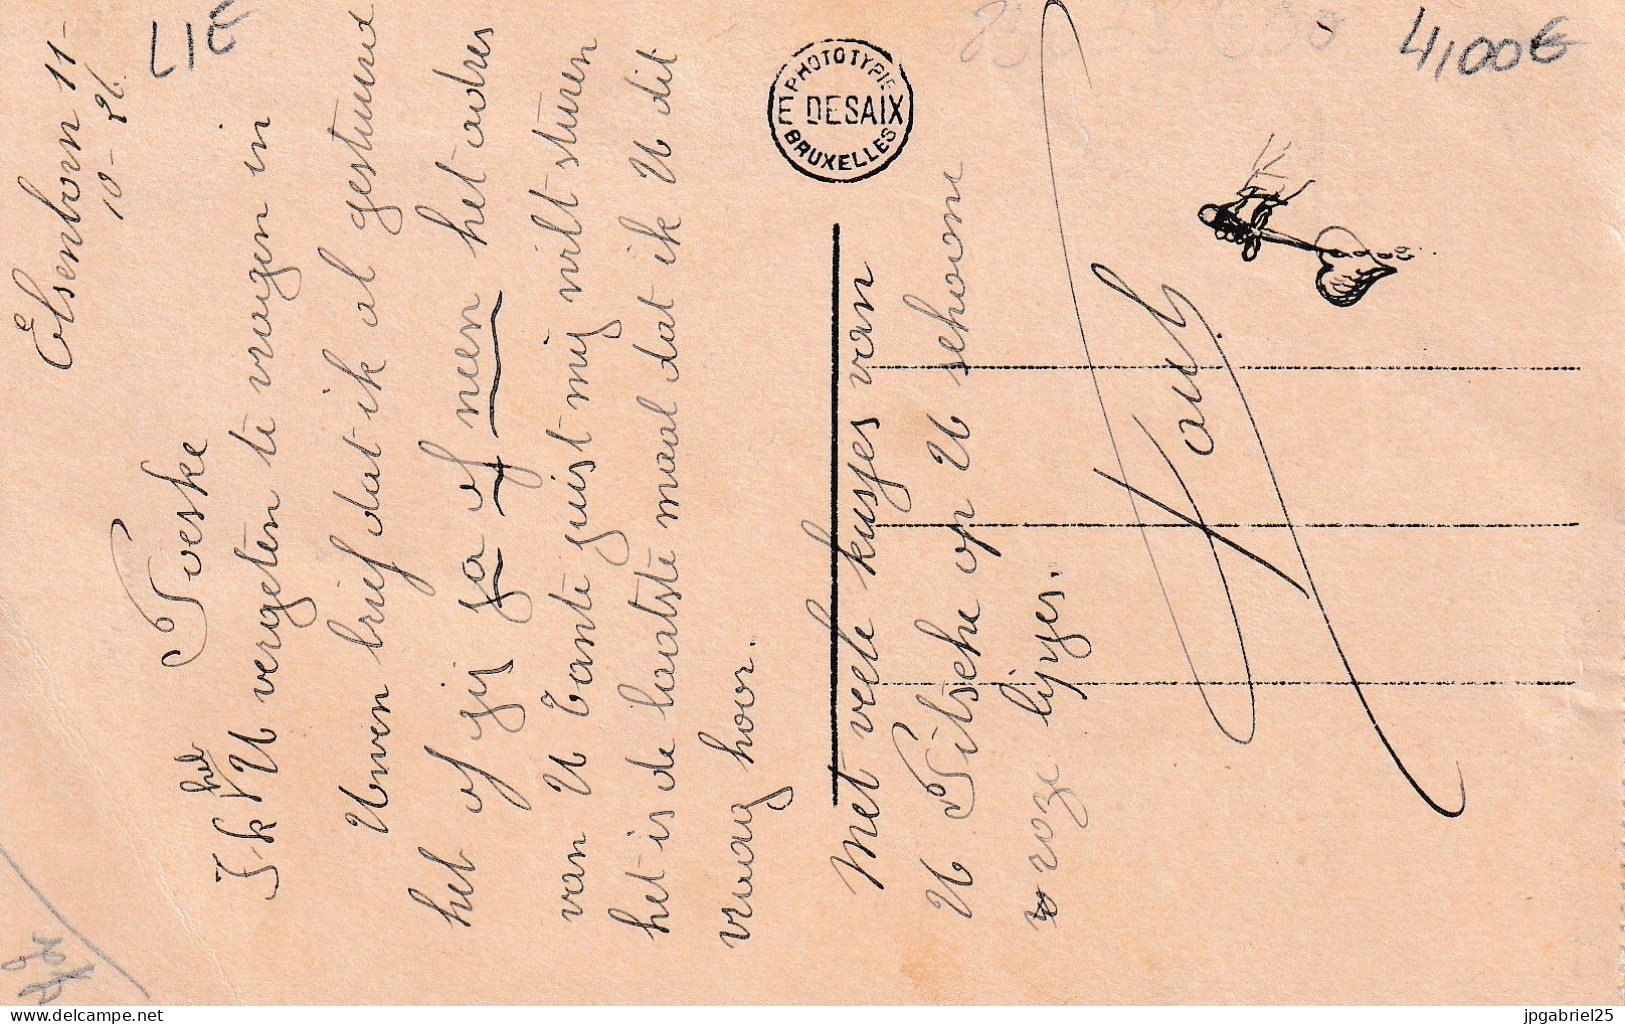 LIE
4,00€
Elsenborn 11-
10-26.
Toeske
Ik heb U vergeten te vragen in
Uwen brief dat ik al gestuurd
heb of gij ja of neen het adres
van U Tante juist mij wilt sturen
het is de laatste maal dat ik U dit
vraag hoor.
E. PHOTOTYPIE
DESAIX
BRUXELLES
Met vele kusjes van
U op U schoone
roze lipjes.
delcampe.net
jpgabriel25